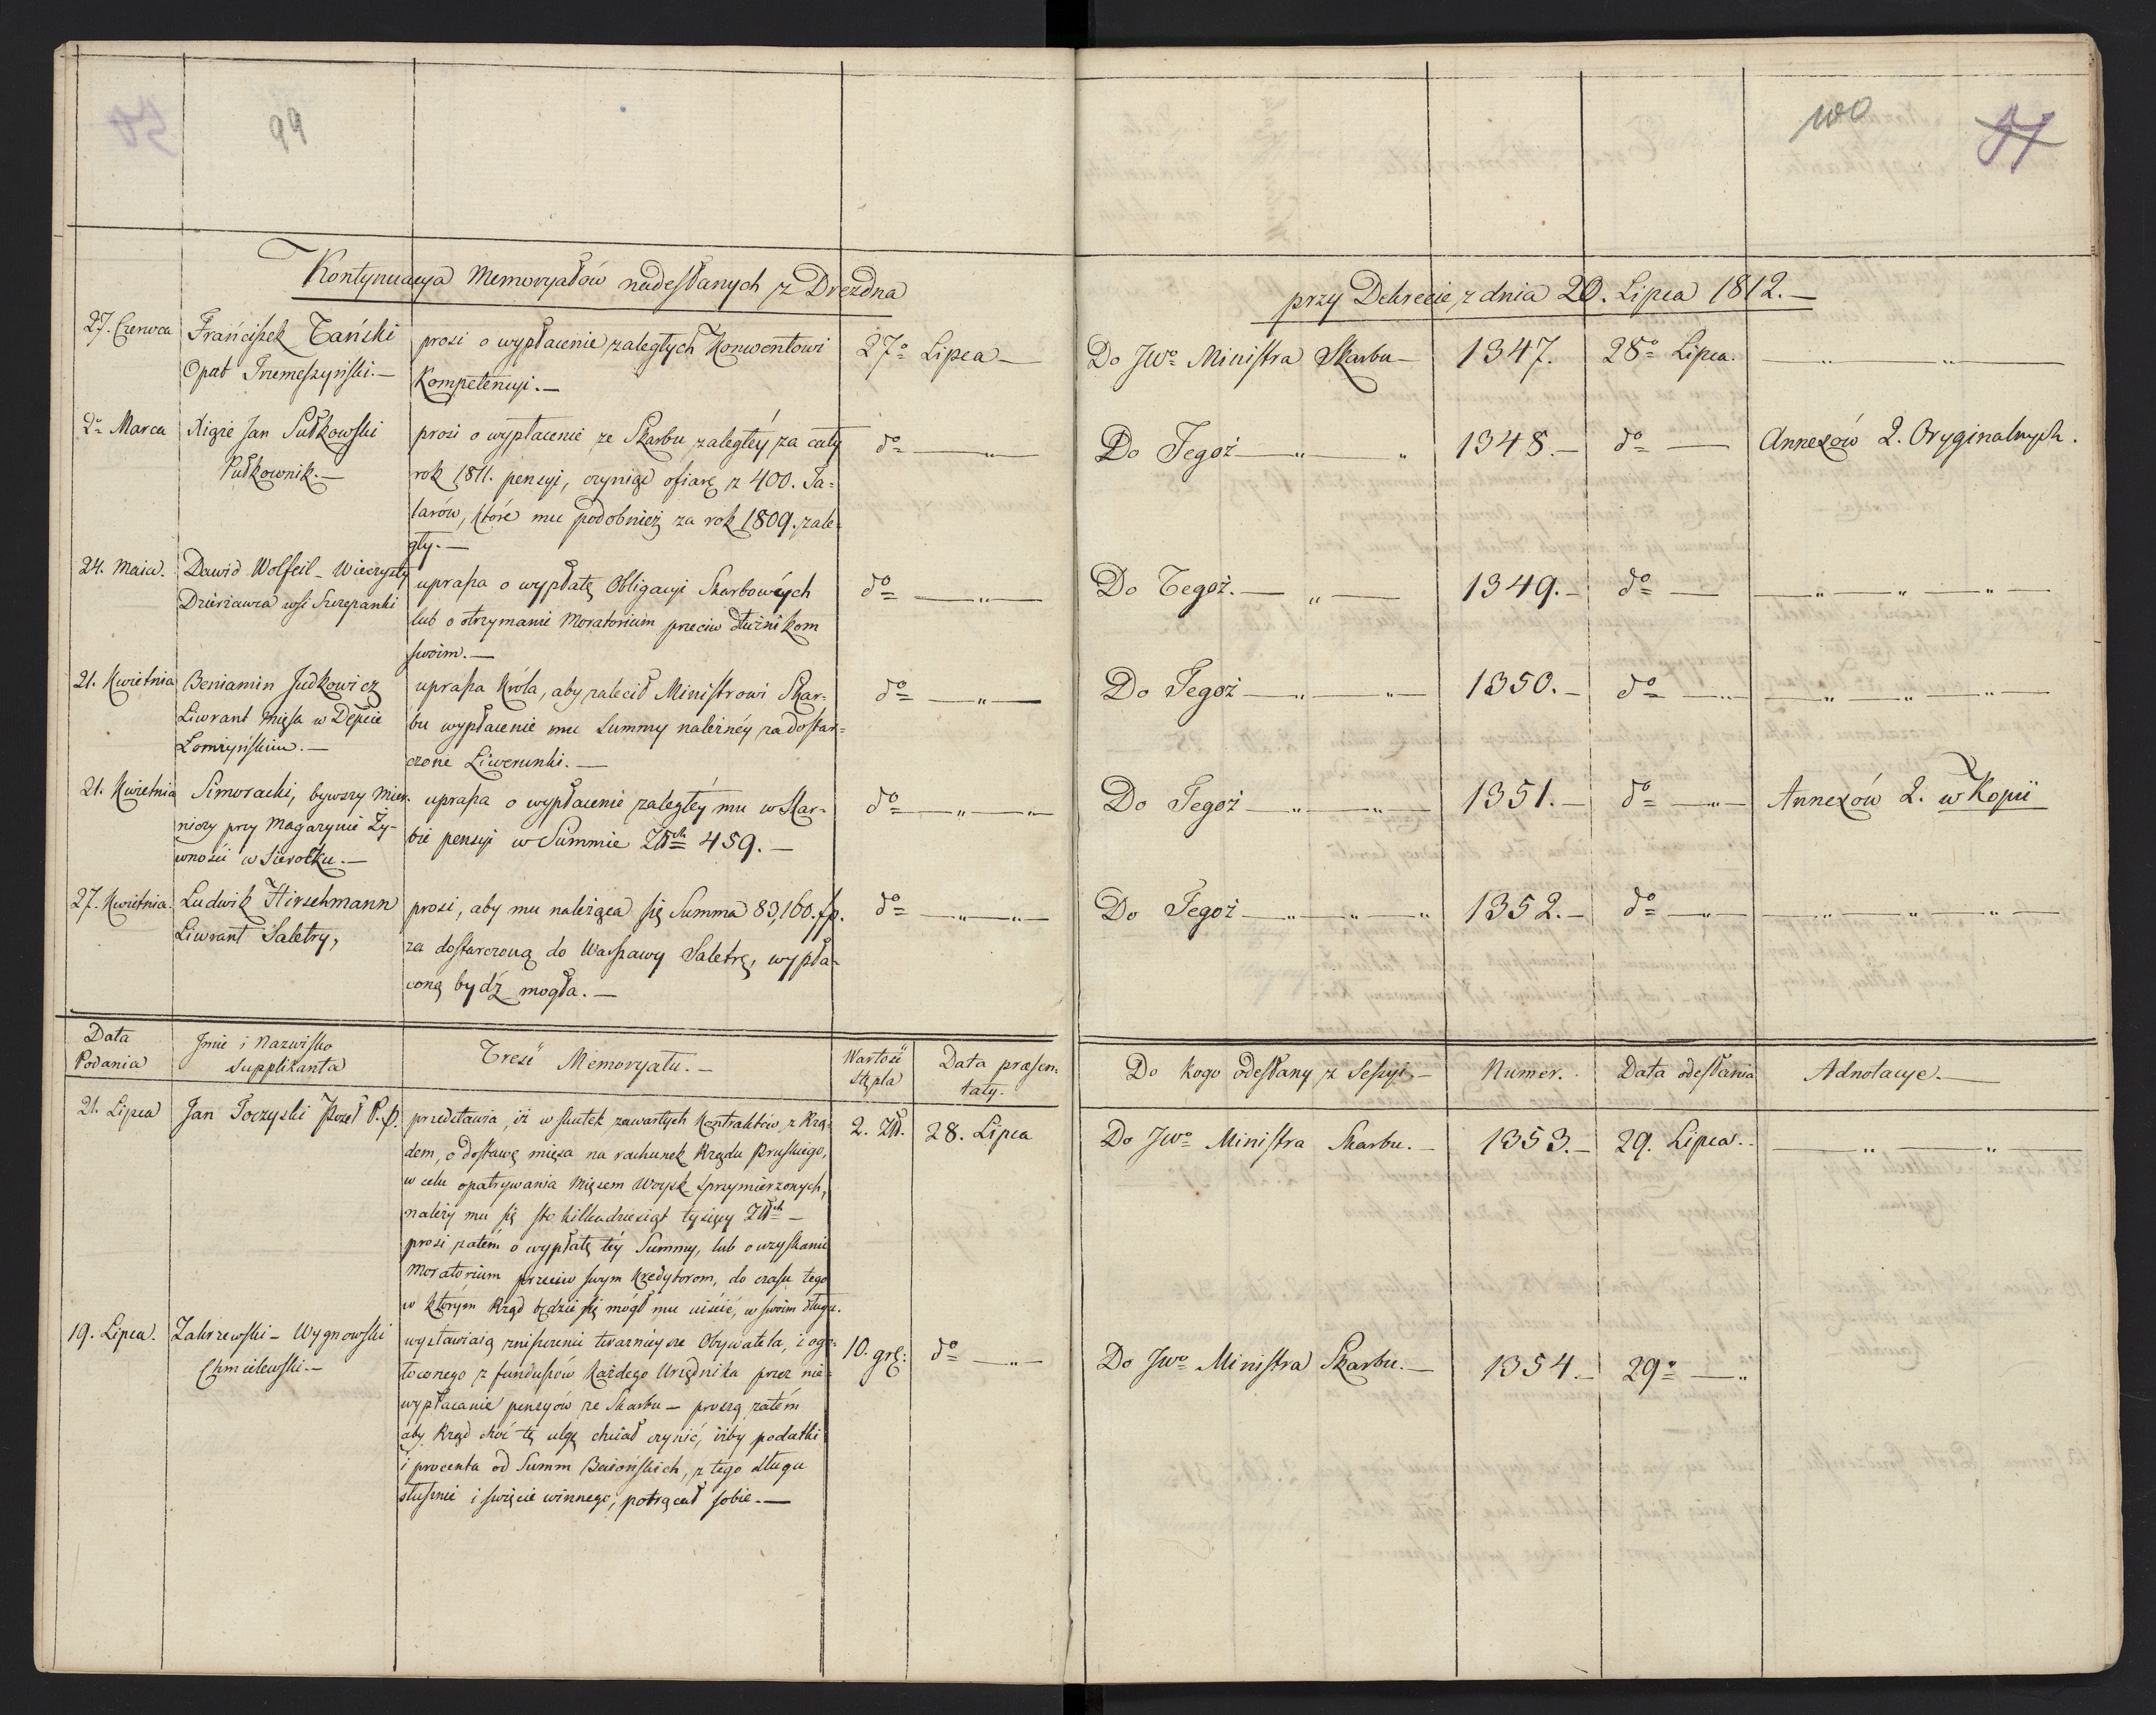 50
99
100
51
Kontynuacya Memoryałów nadesłanych z Drezdna
przy Dekrecie z dnia 20. Lipca 1812. —
27. Czerwca
Franciszek Tański
Opat Przemeszyński. —
prosi o wypłacenie zaległych Konwentowi
Kompetencyi. —
27º Lipca —
Do JWº Ministra Skarbu —
1347.
28º Lipca.
2º Marca
Xiąże Jan Sułkowski
Pułkownik. —
prosi o wypłacenie ze Skarbu zaległéy za cały
rok 1811. pensyi, czyniąc ofiarę z 400. Ta=
larów, które mu podobnież za rok 1809. zale=
gły. —
dº — „ —
Do Tegoż — „ — „
1348. —
dº —
Annexów 2. Oryginalnych.
24. Maia.
Dawid Wolfeil — Wieczysty
Dzierżawca wsi Szczepanki
uprasza o wypłatę Obligacyi Skarbowych
lub o otrzymanie Moratorium przeciw dłużnikom
swoim. —
dº — „ —
Do Tegoż. — „ —
1349. —
dº —
— „ — „ — „ —
21. Kwietnia
Beniamin Judkowicz
Liwrant Mięsa w Depcie
Łomżyńskim. —
uprasza Króla, aby zalecił Ministrowi Skar=
bu wypłacenie mu Summy należnéy za dostar=
czone Liwerunki. —
dº — „ —
Do Tegoż — „ — „ —
1350. —
dº — „ —
— „ — „ — „ —
21. Kwietnia
Simoracki, bywszy Mier=
niczy przy Magazynie Ży=
wności w Sierotku. —
uprasza o wypłacenie zaległéy mu w Skar=
bie pensyi w Summie Złłch 459. —
dº — „ — „ —
Do Tegoż — „ — „ —
1351. —
dº — „ —
Annexów 2. w Kopii
27. Kwietnia.
Ludwik Hirschmann
Liwrant Saletry,
prosi, aby mu należąca się Summa 83,160. fp.
za dostarczoną do Warszawy Saletrę, wypła=
coną bydź mogła. —
dº — „ — „ —
Do Tegoż — „ — „ — „
1352. —
dº — „ —
— „ — „ — „ —
Data
Podania
Jmie i Nazwisko
Supplikanta
Treść Memoryału. —
Wartość
Stępla
Data præsen=
taty.
Do kogo odesłany z Sessyi. —
Numer.
Data odesłania
Adnotacye. —
21. Lipca
Jan Toczyski Poseł P. P.
przedstawia, iż w skutek zawartych Kontraktów z Rzą=
dem, o dostawę mięsa na rachunek Rządu Pruskiego,
w celu opatrywania Mięsem Woysk sprzymierzonych,
należy mu się sto kilkadziesiąt tysięcy Złłch —
prosi zatém o wypłatę téy Summy, lub o uzyskanie
Moratorium przeciw swym Kredytorom, do czasu tego
w którym Rząd będzie się mógł mu uiścić, w swoim długu.
2. Złł.
28. Lipca
Do JWº Ministra Skarbu. —
1353. —
29. Lipca.
— „ — „ —
19. Lipca.
Zakrzewski — Wygnowski
Chmielewski. —
wystawiaią zniszczenie teraznieysze Obywatela, i ogo=
łoconego z funduszów każdego Urzędnika przez nie=
wypłacanie pensyów ze Skarbu — proszą zatém
aby Rząd choć tę ulgę chciał czynić, iżby podatki
i procenta od Summ Baiońskich, z tego długu
słusznie i święcie winnego, potrącał sobie. —
10. grę:
dº — „ —
Do JWº Ministra Skarbu. —
1354. —
29º — „